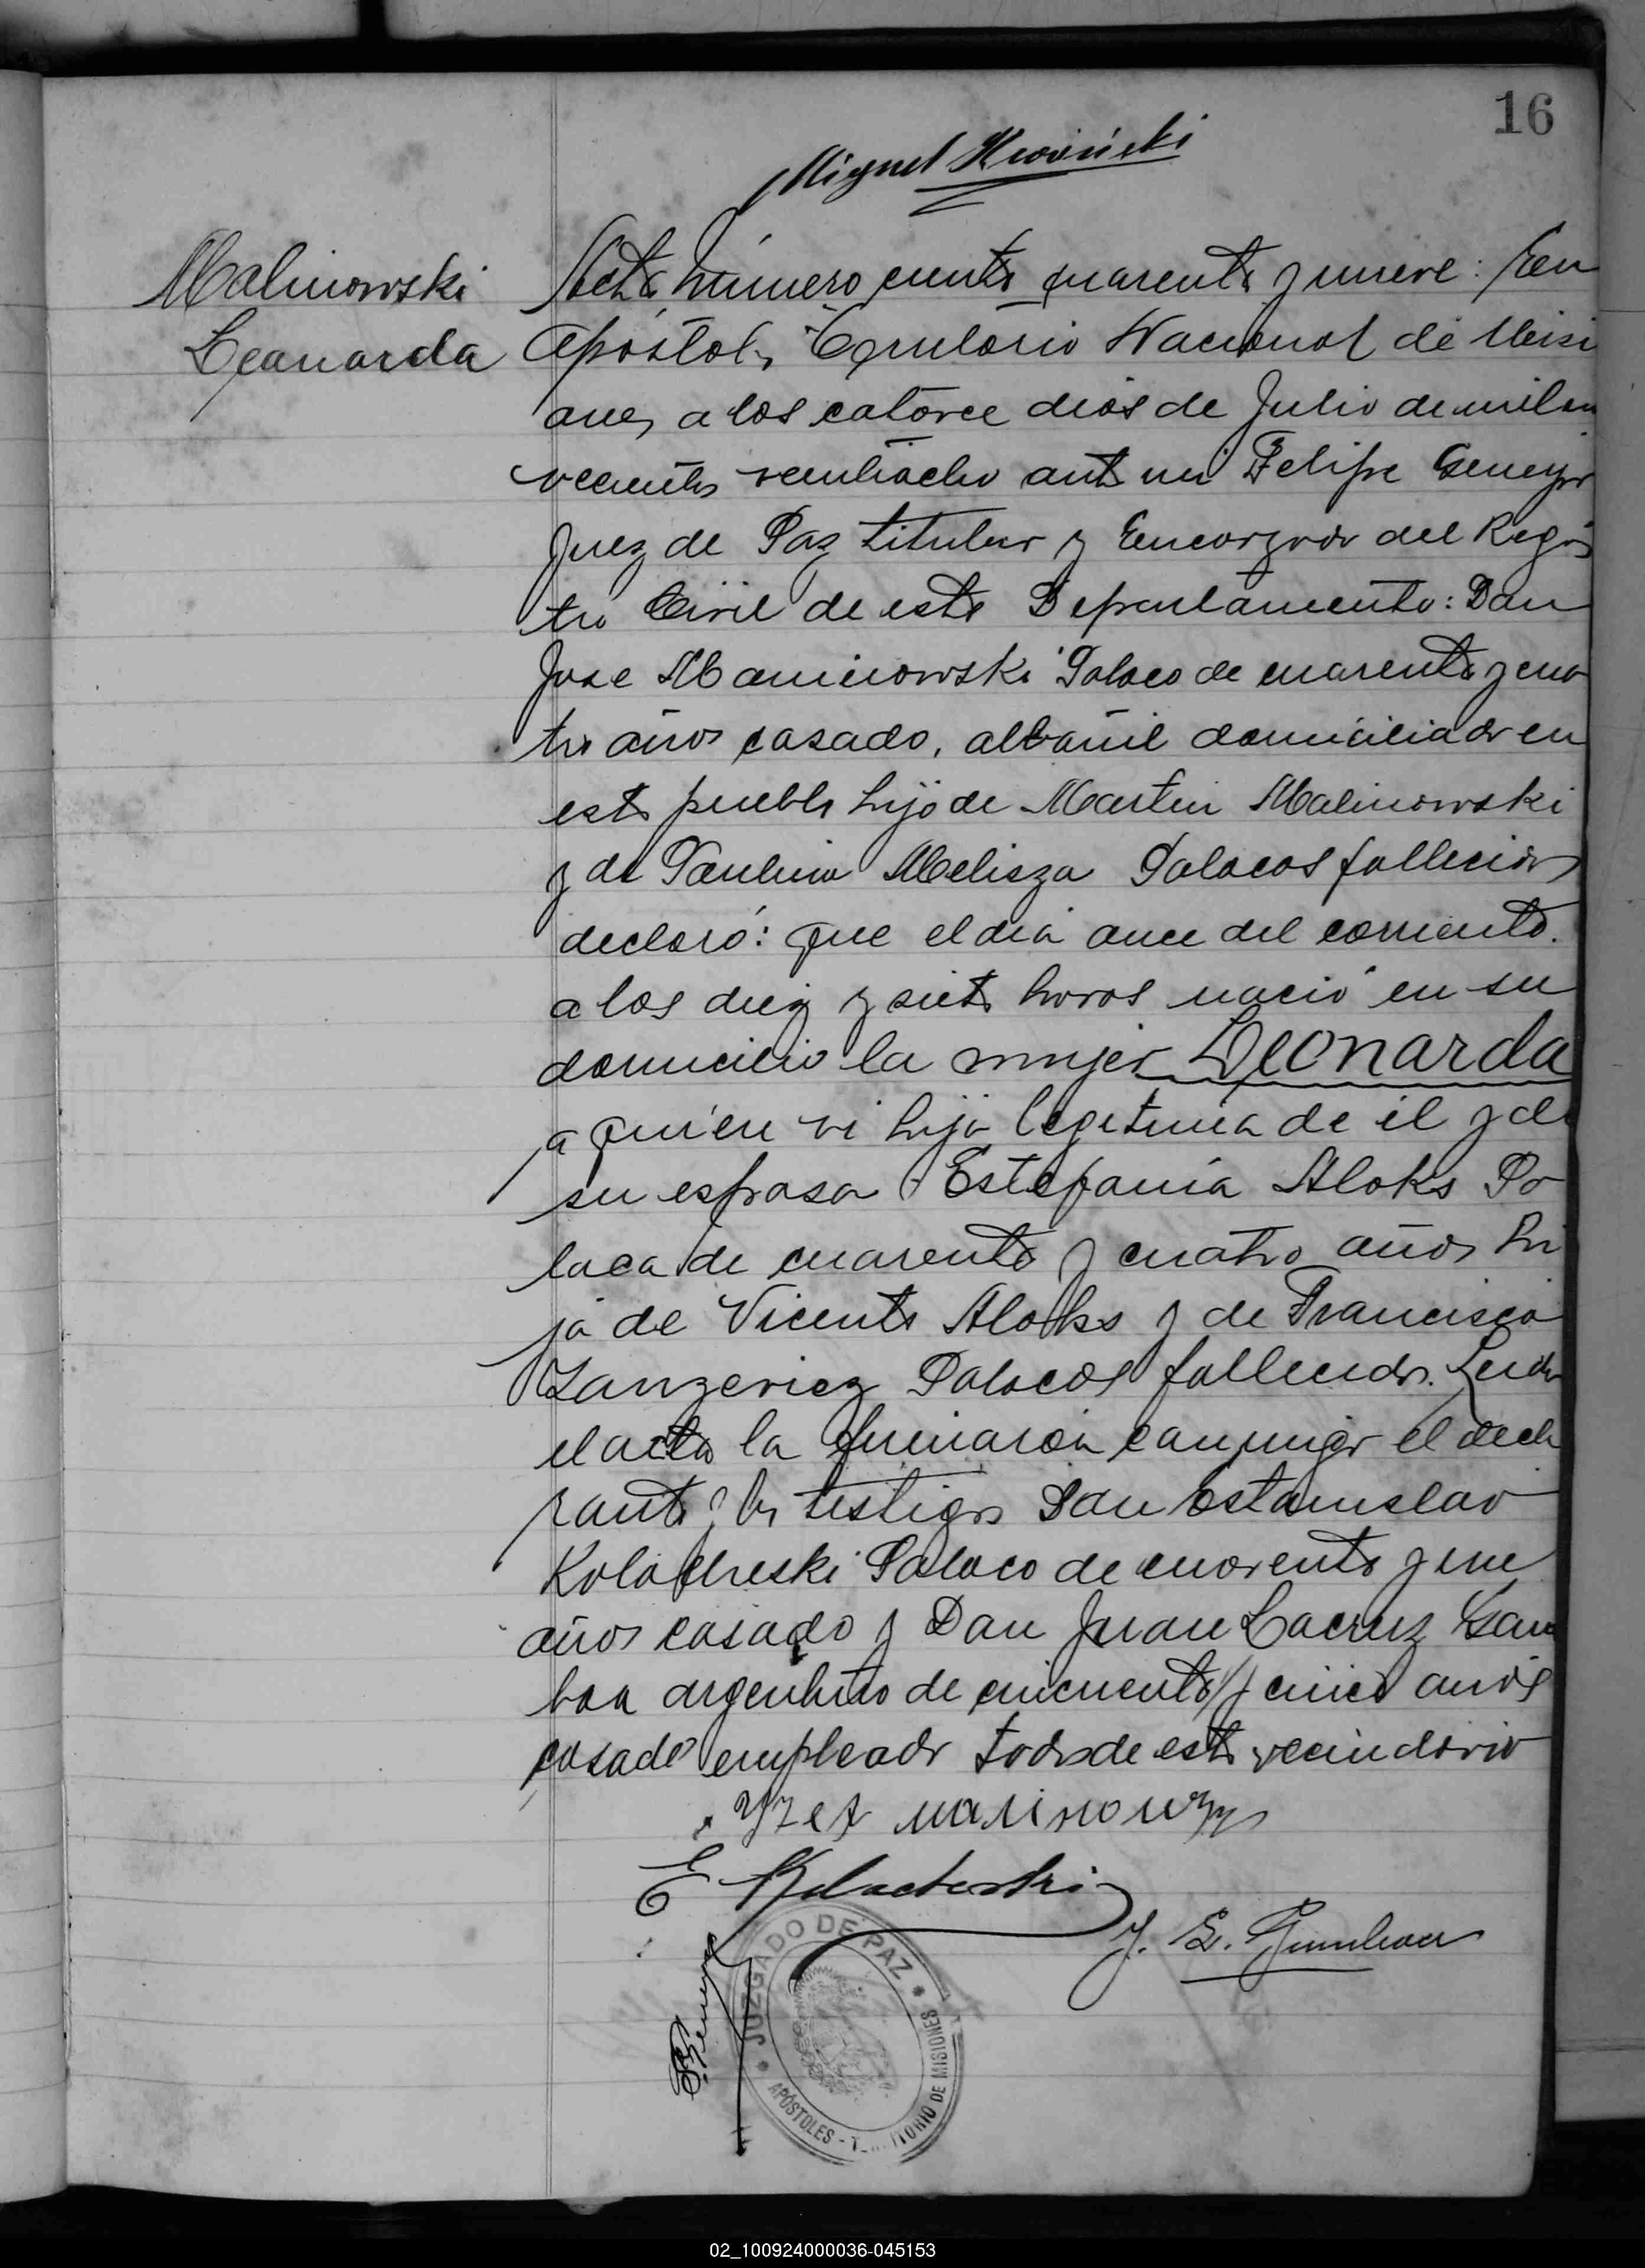 16
Miguel
Malinowski
Leonarda
Acta número ciento cuarenta y nueve: En
Apóstoles Territorio Nacional de Misi
ones a los catorce dias de Julio de mil no
vecientos veintiocho ante mi Felipe
Juez de Paz titular y Encargado del Regis
tro Civil de este Departamento: Don
Jose Maninowski Polaco de cuarenta y cua
tro años casado, albañil domiciliado en
este pueblo hijo de Martin Malinowski
y de Paulina Melisza Polacos fallecidos
declaró: que el dia once del corriente.
a las diez y siete horas nació en su
domicilio la mujer Leonarda
a quien vi hija legitima de él y de
su esposa Estefania Aloks Po
laca de cuarenta y cuatro años hi
ja de Vicente Aloks y de Francisca
Polacos fallecidos. Leida
el acta la firmaron conmigo el decla
rante y los testigos Don Estanislao
Polaco de cuarenta y
años casado y Don Juan Lacruz Gam
boa argentino de cincuenta y cinco años
casado empleado todos de este vecindario
E
J. L. Gamboa
JUZGADO DE PAZ
APÓSTOLES - TERRITORIO DE MISIONES
02_100924000036-045153